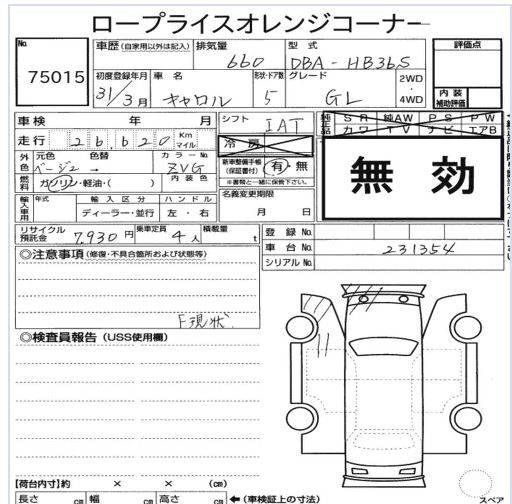 ロープライスオレンジコーナー
No. 75015
車歴 (自家用以外は記入) 排気量 660 型式 DBA-HB36S 評価点
初度登録年月 31/3月 車名 キャロル 形状・ドア数 5 グレード GL 2WD・4WD 内装補助評価
車検 年 月 シフト IAT 純正品 SR 純AW PS PW
走行 26,620 Km マイル 冷房 カワ TV ナビ エアB
外色 元色 ベージュ 色替 → カラーNo. ZVG 新車整備手帳(保証書付) 有・無 無効
※書類と一緒に保管下さい。
燃料 ガソリン・軽油・( ) 内装色 名義変更期限
輸入車用 年式 輸入区分 ハンドル 月 日
ディーラー・並行 左・右
リサイクル預託金 7,930円 乗車定員 4人 積載量 t 登録No.
車台No. 231354
◎注意事項 (修復・不具合箇所および状態等) シリアルNo.
F現状
◎検査員報告 (USS使用欄)
【荷台内寸】約 × × (cm)
長さ cm 幅 cm 高さ cm ← (車検証上の寸法)
スペア